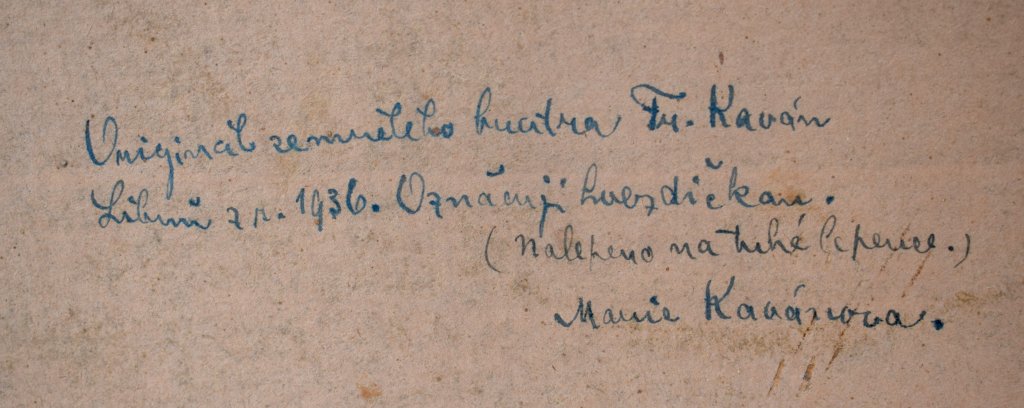 Originál zemřelého bratra Fr. Kaván
Libuň z r. 1936. Označuji hvězdičkou.
(Nalepeno na tuhé lepence.)
Marie Kavánova.